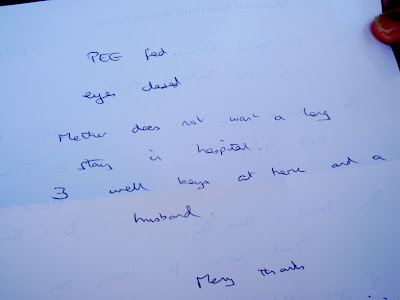 PEG fed.
eyes closed
Mother does not want a long
stay in hospital.
3 well boys at home and a
husband.
Many thanks